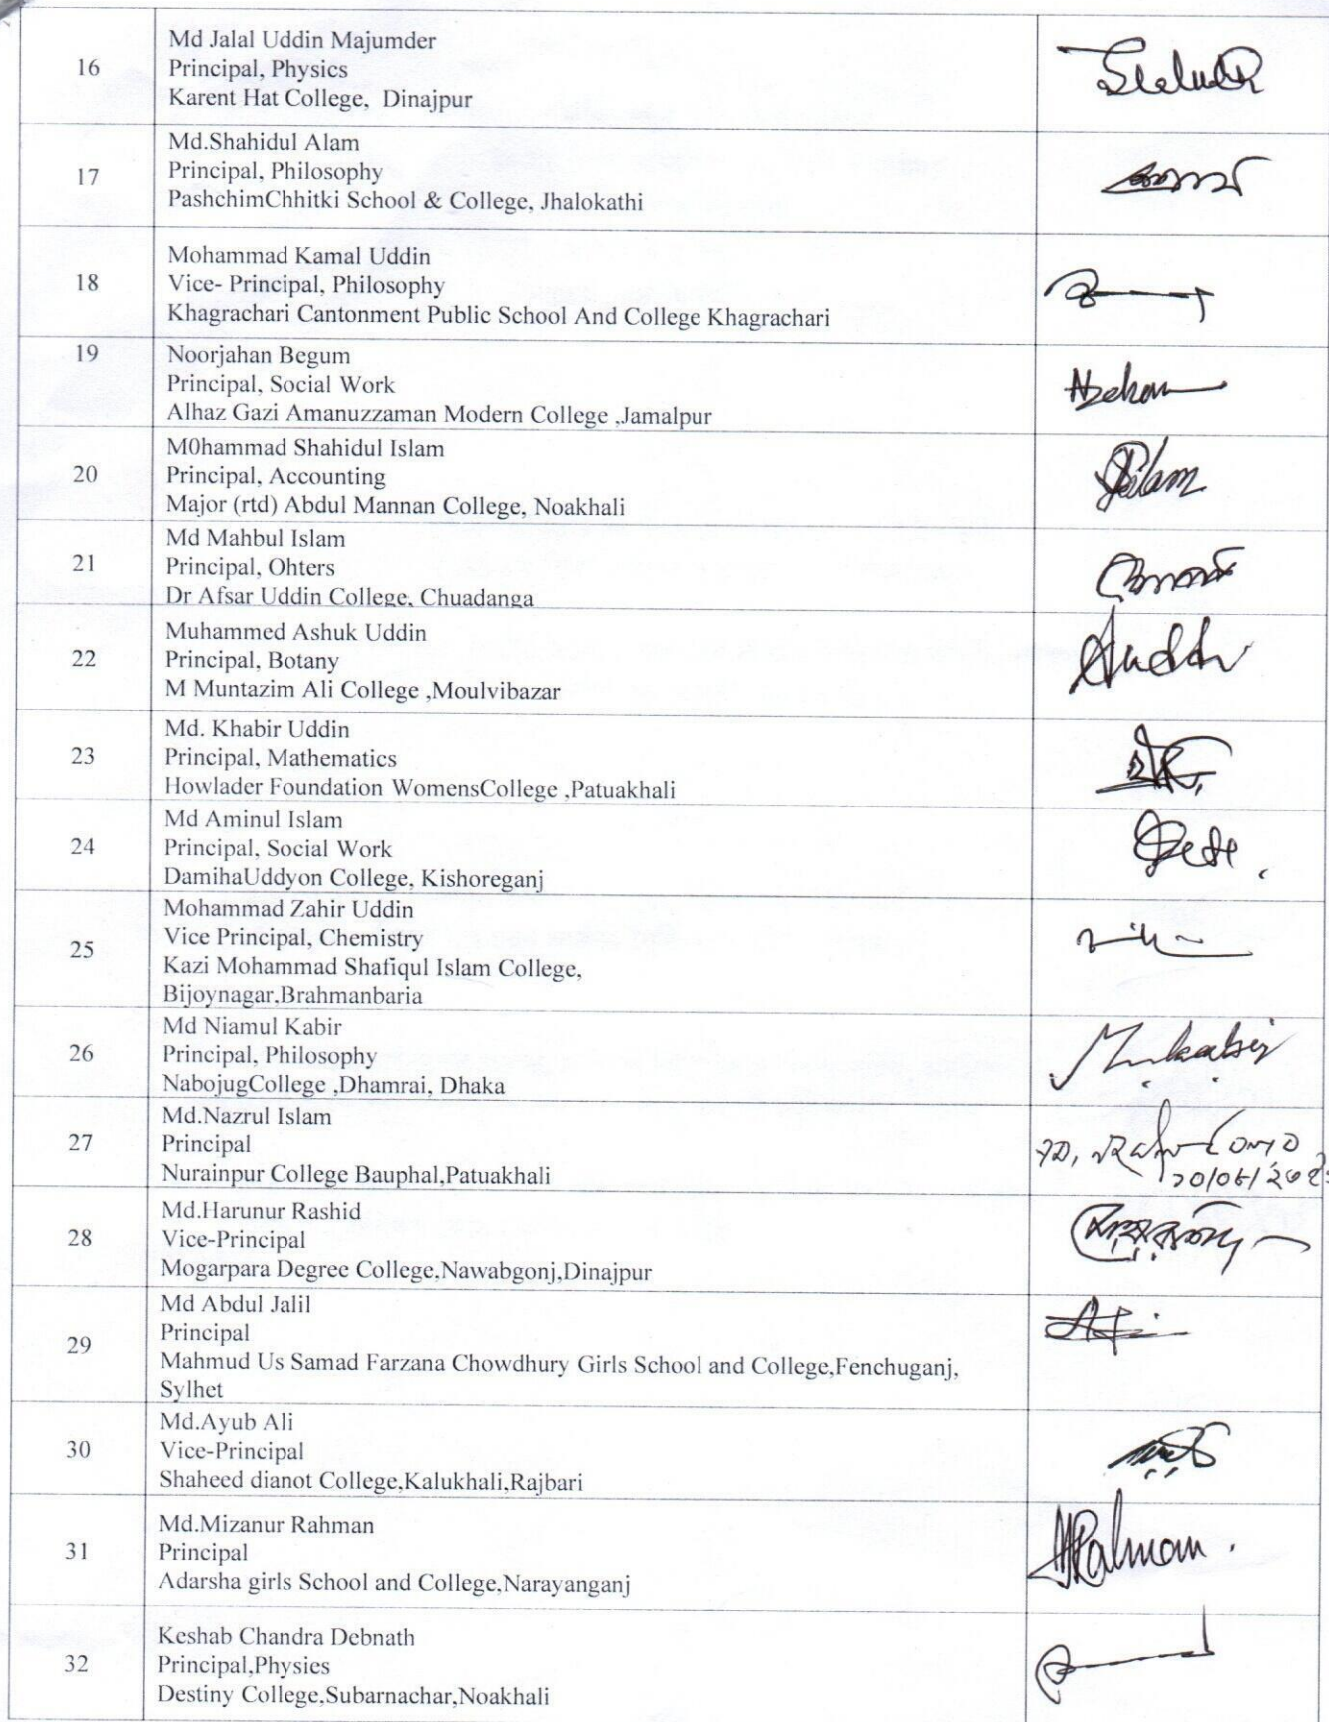 16
Md Jalal Uddin Majumder
Principal, Physics
Karent Hat College, Dinajpur
17
Md.Shahidul Alam
Principal, Philosophy
PashchimChhitki School & College, Jhalokathi
18
Mohammad Kamal Uddin
Vice- Principal, Philosophy
Khagrachari Cantonment Public School And College Khagrachari
19
Noorjahan Begum
Principal, Social Work
Alhaz Gazi Amanuzzaman Modern College ,Jamalpur
20
M0hammad Shahidul Islam
Principal, Accounting
Major (rtd) Abdul Mannan College, Noakhali
21
Md Mahbul Islam
Principal, Ohters
Dr Afsar Uddin College, Chuadanga
22
Muhammed Ashuk Uddin
Principal, Botany
M Muntazim Ali College ,Moulvibazar
23
Md. Khabir Uddin
Principal, Mathematics
Howlader Foundation WomensCollege ,Patuakhali
24
Md Aminul Islam
Principal, Social Work
DamihaUddyon College, Kishoreganj
25
Mohammad Zahir Uddin
Vice Principal, Chemistry
Kazi Mohammad Shafiqul Islam College,
Bijoynagar,Brahmanbaria
26
Md Niamul Kabir
Principal, Philosophy
NabojugCollege ,Dhamrai, Dhaka
27
Md.Nazrul Islam
Principal
Nurainpur College Bauphal,Patuakhali
28
Md.Harunur Rashid
Vice-Principal
Mogarpara Degree College,Nawabgonj,Dinajpur
29
Md Abdul Jalil
Principal
Mahmud Us Samad Farzana Chowdhury Girls School and College,Fenchuganj,
Sylhet
30
Md.Ayub Ali
Vice-Principal
Shaheed dianot College,Kalukhali,Rajbari
31
Md.Mizanur Rahman
Principal
Adarsha girls School and College,Narayanganj
32
Keshab Chandra Debnath
Principal,Physics
Destiny College,Subarnachar,Noakhali